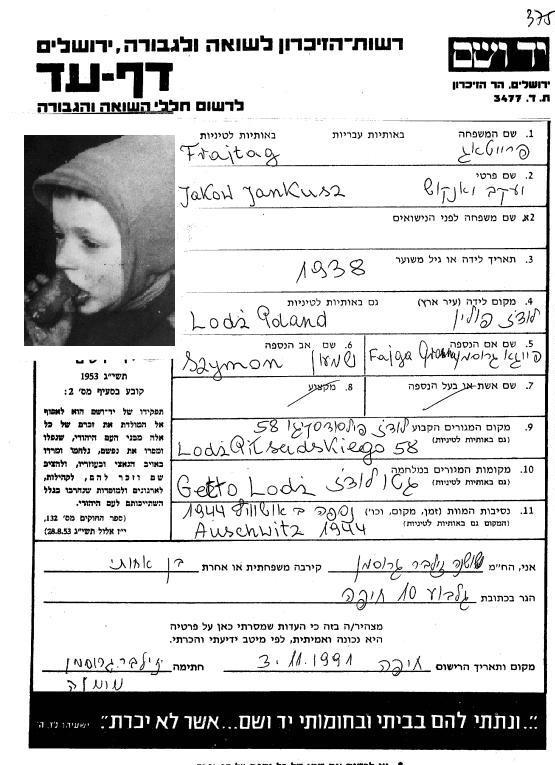 375
יד ושם
רשות-הזיכרון לשואה ולגבורה, ירושלים
דף-עד
לרשום חללי השואה והגבורה
ירושלים, הר הזיכרון
ת. ד. 3477
1. שם המשפחה באותיות עבריות באותיות לטיניות
Frajtag פרייטאג
2. שם פרטי
Jakow Jankusz יעקב יאנקוש
2א. שם משפחה לפני הנישואים
3. תאריך לידה או גיל משוער
1938
4. מקום לידה (עיר ארץ) גם באותיות לטיניות
Lodż Poland לודז' פולין
5. שם אם הנספה
Fajga פייגא גרוסמן
6. שם אב הנספה
Szymon שמעון
7. שם אשת או בעל הנספה
8. מקצוע
9. מקום המגורים הקבוע לודז' פילסודסקיגו 58
(גם באותיות לטיניות)
Lodż Piłsudskiego 58
10. מקומות המגורים במלחמה
(גם באותיות לטיניות)
Getto Lodż גטו לודז'
11. נסיבות המוות (זמן, מקום, וכו') נספה באושוויץ 1944
(המקום גם באותיות לטיניות)
Auschwitz 1944
תשי"ג 1953
קובע בסעיף מס' 2:
תפקידו של יד-ושם הוא לאסוף
אל המולדת את זכרם של כל
אלה מבני העם היהודי, שנפלו
ומסרו את נפשם, נלחמו ומרדו
באויב הנאצי ובעוזריו, ולהציב
שם וזכר להם, לקהילות,
לארגונים ולמוסדות שנחרבו בגלל
השתייכותם לעם היהודי.
(ספר החוקים מס' 132,
י"ז אלול תשי"ג 28.8.53)
אני, הח"מ שושנה זילבר גרוסמן קירבה משפחתית או אחרת בן אחותי
הגר בכתובת גלבוע 10 חיפה
מצהיר/ה בזה כי העדות שמסרתי כאן על פרטיה
היא נכונה ואמיתית, לפי מיטב ידיעתי והכרתי.
מקום ותאריך הרישום חיפה 3.11.1991 חתימה זילבר גרוסמן
שושנה
"...ונתתי להם בביתי ובחומותי יד ושם...אשר לא יכרת". ישעיהו נ"ו, ה'